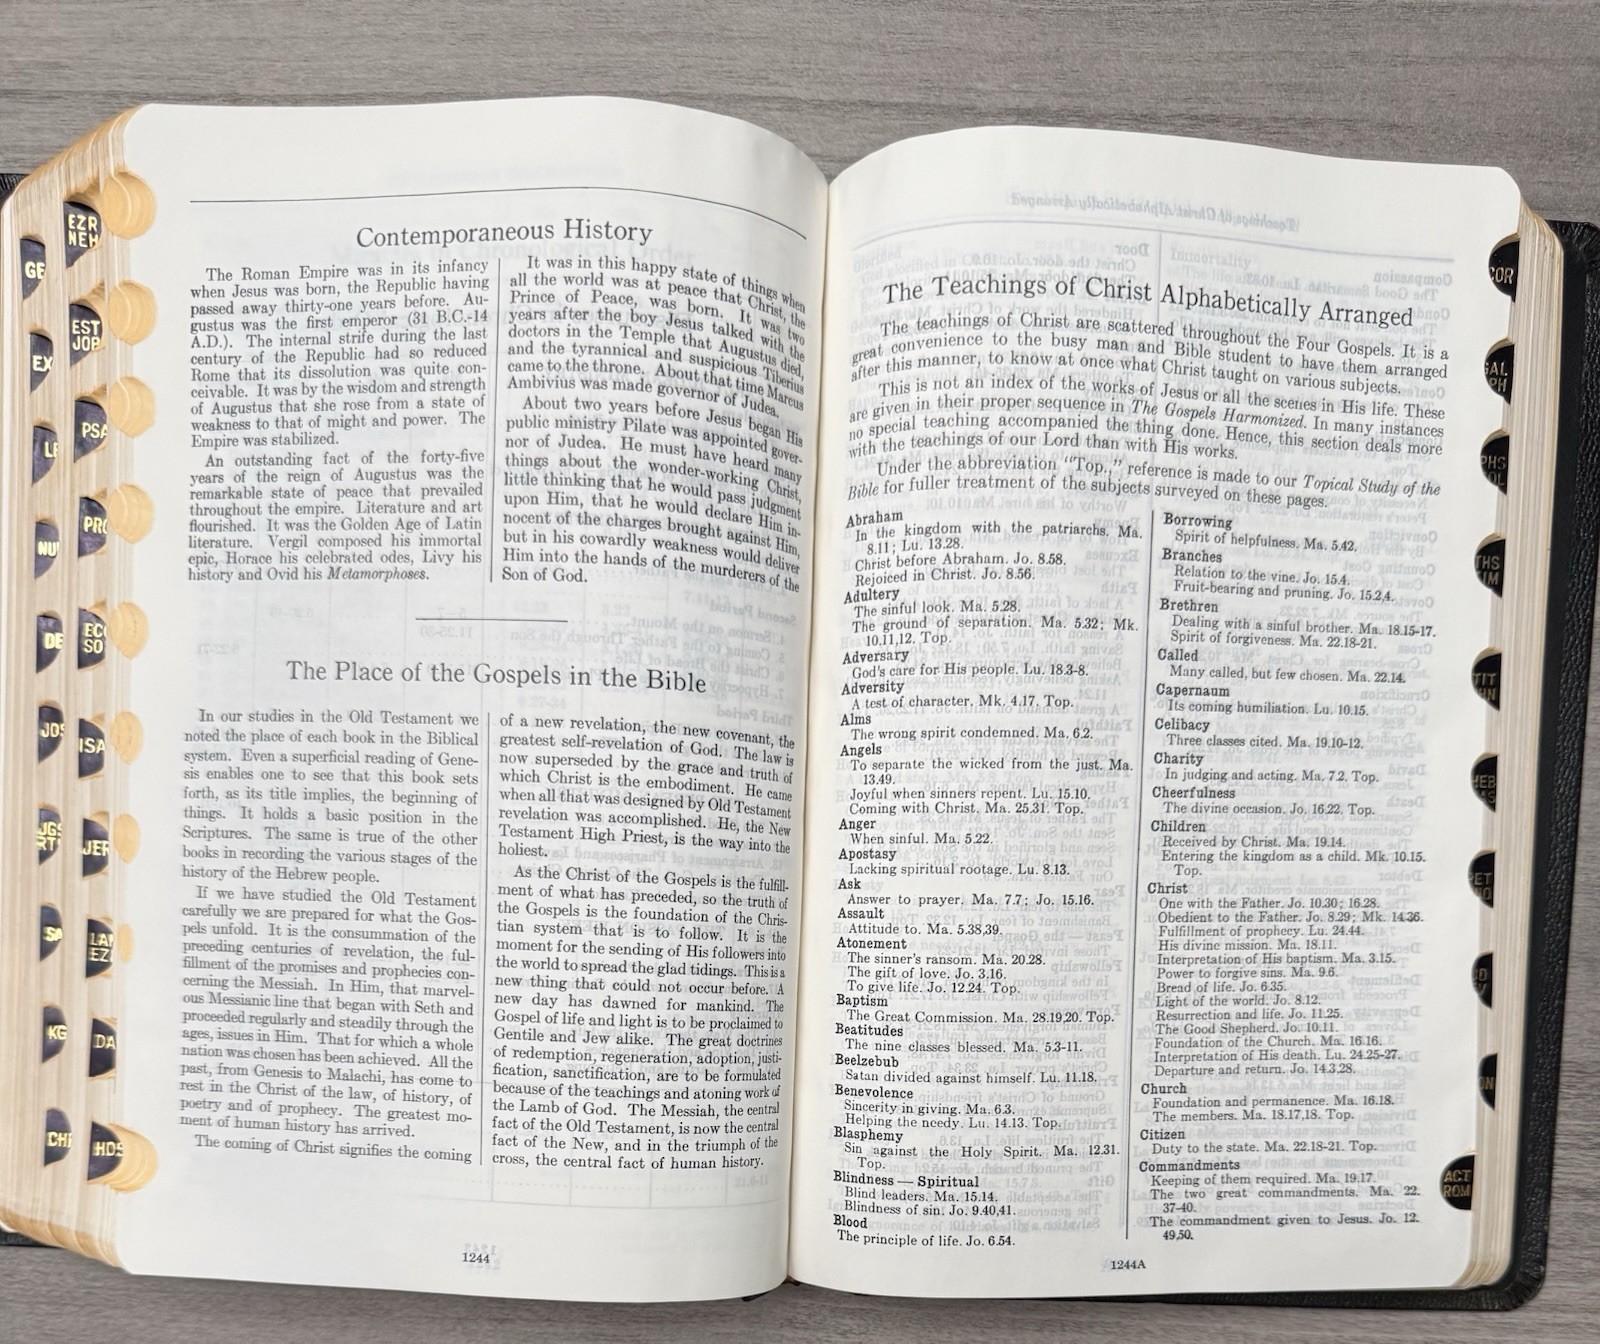 Contemporaneous History
The Roman Empire was in its infancy
when Jesus was born, the Republic having
passed away thirty-one years before. Au-
gustus was the first emperor (31 B.C.-14
A.D.). The internal strife during the last
century of the Republic had so reduced
Rome that its dissolution was quite con-
ceivable. It was by the wisdom and strength
of Augustus that she rose from a state of
weakness to that of might and power. The
Empire was stabilized.
An outstanding fact of the forty-five
years of the reign of Augustus was the
remarkable state of peace that prevailed
throughout the empire. Literature and art
flourished. It was the Golden Age of Latin
literature. Vergil composed his immortal
epic, Horace his celebrated odes, Livy his
history and Ovid his Metamorphoses.
It was in this happy state of things when
all the world was at peace that Christ, the
Prince of Peace, was born. It was two
years after the boy Jesus talked with the
doctors in the Temple that Augustus died,
and the tyrannical and suspicious Tiberius
came to the throne. About that time Marcus
Ambivius was made governor of Judea.
About two years before Jesus began His
public ministry Pilate was appointed gover-
nor of Judea. He must have heard many
things about the wonder-working Christ,
little thinking that he would pass judgment
upon Him, that he would declare Him in-
nocent of the charges brought against Him,
but in his cowardly weakness would deliver
Him into the hands of the murderers of the
Son of God.
The Place of the Gospels in the Bible
In our studies in the Old Testament we
noted the place of each book in the Biblical
system. Even a superficial reading of Gene-
sis enables one to see that this book sets
forth, as its title implies, the beginning of
things. It holds a basic position in the
Scriptures. The same is true of the other
books in recording the various stages of the
history of the Hebrew people.
If we have studied the Old Testament
carefully we are prepared for what the Gos-
pels unfold. It is the consummation of the
preceding centuries of revelation, the ful-
fillment of the promises and prophecies con-
cerning the Messiah. In Him, that marvel-
ous Messianic line that began with Seth and
proceeded regularly and steadily through the
ages, issues in Him. That for which a whole
nation was chosen has been achieved. All the
past, from Genesis to Malachi, has come to
rest in the Christ of the law, of history, of
poetry and of prophecy. The greatest mo-
ment of human history has arrived.
The coming of Christ signifies the coming
of a new revelation, the new covenant, the
greatest self-revelation of God. The law is
now superseded by the grace and truth of
which Christ is the embodiment. He came
when all that was designed by Old Testament
revelation was accomplished. He, the New
Testament High Priest, is the way into the
holiest.
As the Christ of the Gospels is the fulfill-
ment of what has preceded, so the truth of
the Gospels is the foundation of the Chris-
tian system that is to follow. It is the
moment for the sending of His followers into
the world to spread the glad tidings. This is a
new thing that could not occur before. A
new day has dawned for mankind. The
Gospel of life and light is to be proclaimed to
Gentile and Jew alike. The great doctrines
of redemption, regeneration, adoption, justi-
fication, sanctification, are to be formulated
because of the teachings and atoning work of
the Lamb of God. The Messiah, the central
fact of the Old Testament, is now the central
fact of the New, and in the triumph of the
cross, the central fact of human history.
1244
The Teachings of Christ Alphabetically Arranged
The teachings of Christ are scattered throughout the Four Gospels. It is a
great convenience to the busy man and Bible student to have them arranged
after this manner, to know at once what Christ taught on various subjects.
This is not an index of the works of Jesus or all the scenes in His life. These
are given in their proper sequence in The Gospels Harmonized. In many instances
no special teaching accompanied the thing done. Hence, this section deals more
with the teachings of our Lord than with His works.
Under the abbreviation "Top.," reference is made to our Topical Study of the
Bible for fuller treatment of the subjects surveyed on these pages.
Abraham
In the kingdom with the patriarchs. Ma.
8.11; Lu. 13.28.
Christ before Abraham. Jo. 8.58.
Rejoiced in Christ. Jo. 8.56.
Adultery
The sinful look. Ma. 5.28.
The ground of separation. Ma. 5.32; Mk.
10.11,12. Top.
Adversary
God's care for His people. Lu. 18.3-8.
Adversity
A test of character. Mk. 4.17, Top.
Alms
The wrong spirit condemned. Ma. 6.2.
Angels
To separate the wicked from the just. Ma.
13.49.
Joyful when sinners repent. Lu. 15.10.
Coming with Christ. Ma. 25.31. Top.
Anger
When sinful. Ma. 5.22.
Apostasy
Lacking spiritual rootage. Lu. 8.13.
Ask
Answer to prayer. Ma. 7.7; Jo. 15.16.
Assault
Attitude to. Ma. 5.38,39.
Atonement
The sinner's ransom. Ma. 20.28.
The gift of love. Jo. 3.16.
To give life. Jo. 12.24. Top.
Baptism
The Great Commission. Ma. 28.19,20. Top.
Beatitudes
The nine classes blessed. Ma. 5.3-11.
Beelzebub
Satan divided against himself. Lu. 11.18.
Benevolence
Sincerity in giving. Ma. 6.3.
Helping the needy. Lu. 14.13. Top.
Blasphemy
Sin against the Holy Spirit. Ma. 12.31.
Top.
Blindness — Spiritual
Blind leaders. Ma. 15.14.
Blindness of sin. Jo. 9.40,41.
Blood
The principle of life. Jo. 6.54.
Borrowing
Spirit of helpfulness. Ma. 5.42.
Branches
Relation to the vine. Jo. 15.4.
Fruit-bearing and pruning. Jo. 15.2,4.
Brethren
Dealing with a sinful brother. Ma. 18.15-17.
Spirit of forgiveness. Ma. 22.18-21.
Called
Many called, but few chosen. Ma. 22.14.
Capernaum
Its coming humiliation. Lu. 10.15.
Celibacy
Three classes cited. Ma. 19.10-12.
Charity
In judging and acting. Ma. 7.2. Top.
Cheerfulness
The divine occasion. Jo. 16.22. Top.
Children
Received by Christ. Ma. 19.14.
Entering the kingdom as a child. Mk. 10.15.
Top.
Christ
One with the Father. Jo. 10.30; 16.28.
Obedient to the Father. Jo. 8.29; Mk. 14.36.
Fulfillment of prophecy. Lu. 24.44.
His divine mission. Ma. 18.11.
Interpretation of His baptism. Ma. 3.15.
Power to forgive sins. Ma. 9.6.
Bread of life. Jo. 6.35.
Light of the world. Jo. 8.12.
Resurrection and life. Jo. 11.25.
The Good Shepherd. Jo. 10.11.
Foundation of the Church. Ma. 16.16.
Interpretation of His death. Lu. 24.25-27.
Departure and return. Jo. 14.3,28.
Church
Foundation and permanence. Ma. 16.18.
The members. Ma. 18.17,18. Top.
Citizen
Duty to the state. Ma. 22.18-21. Top.
Commandments
Keeping of them required. Ma. 19.17.
The two great commandments. Ma. 22.
37-40.
The commandment given to Jesus. Jo. 12.
49,50.
1244A
EZR
NEH
GE
EST
JOB
EX
PSA
NU
DE
EC
SO
JOS
ISA
JER
SA
LAM
EZ
KG
DA
CH
HOS
COR
ACT
ROM